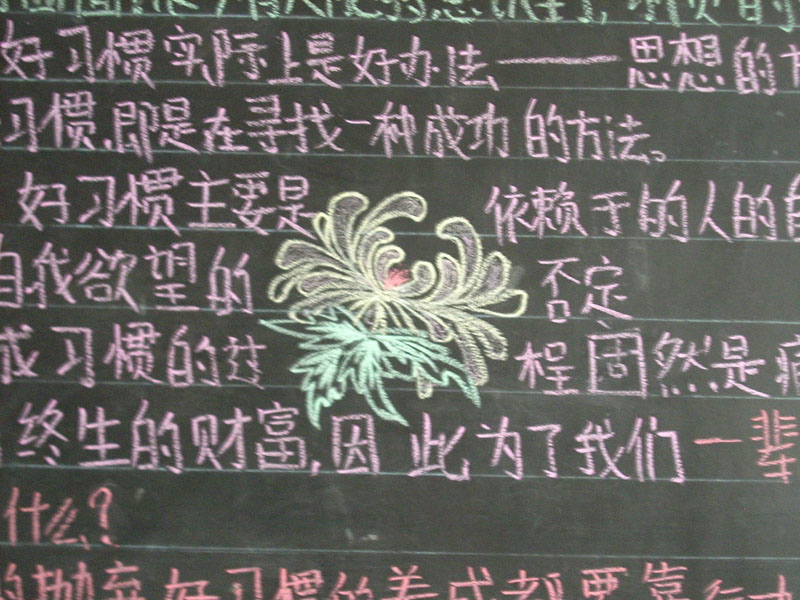 好习惯实际上是好办法——思想的方
习惯,即是在寻找一种成功的方法。
好习惯主要是 依赖于的人的自
自我欲望的 否定
成习惯的过 程固然是痛
终生的财富,因此为了我们一辈
什么?
的抛弃好习惯的养成都要靠行